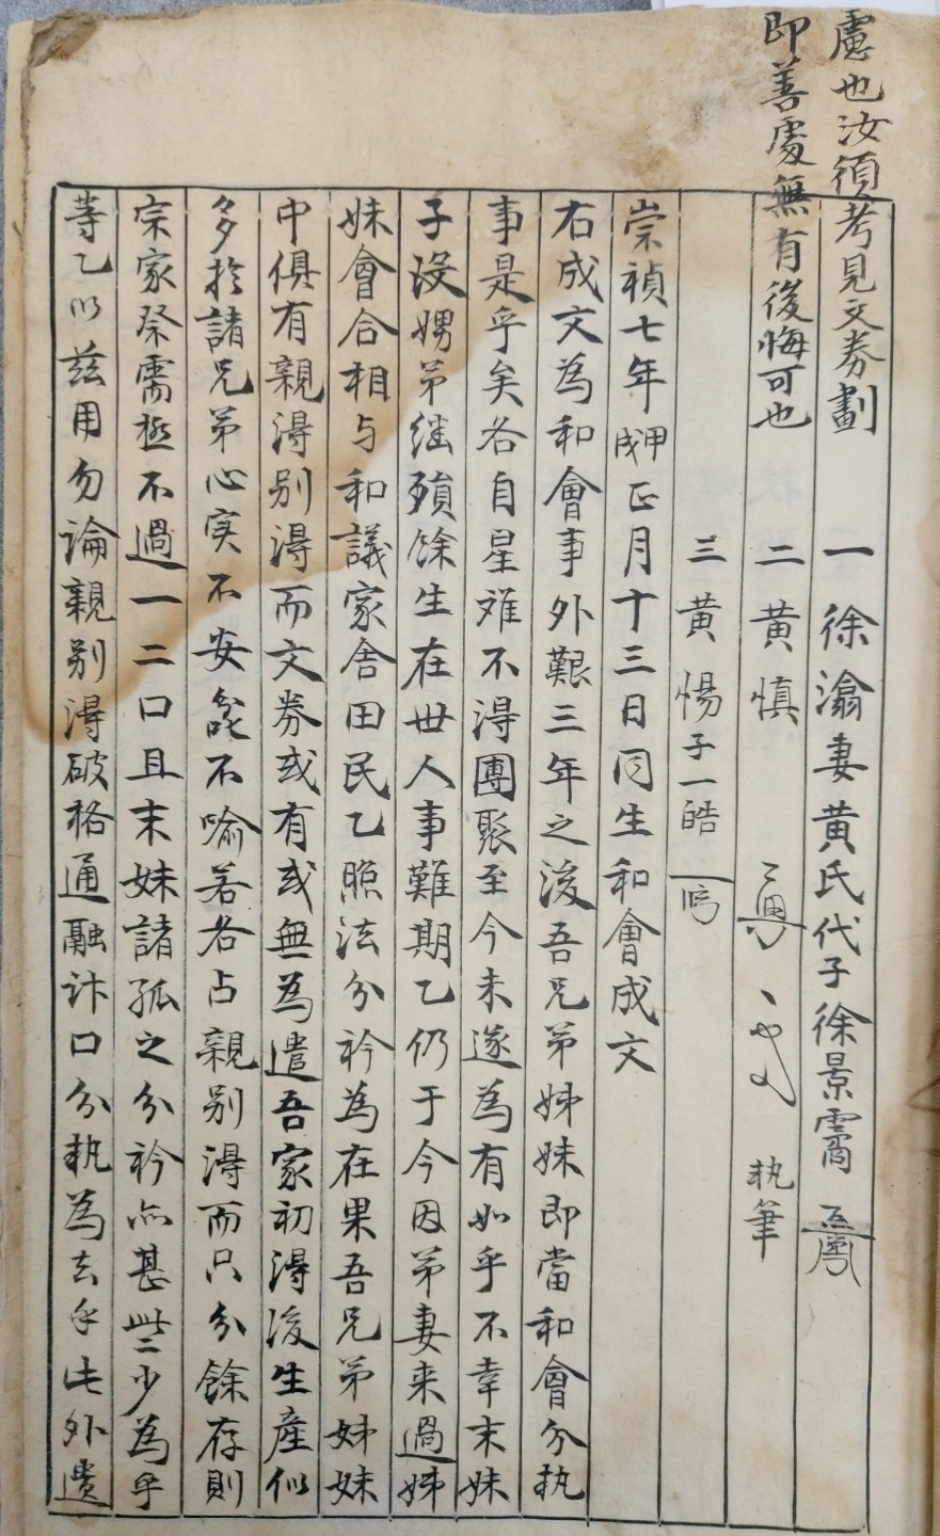 慮也汝須考見文券劃 一 徐瀹妻黃氏代子徐景霌
即善處無有後悔可也 二 黃愼 執筆
三 黃惕子一皓
崇禎七年甲戌正月十三日同生和會成文
右成文爲和會事外艱三年之後吾兄弟姊妹即當和會分執
事是乎矣各自星難不淂團聚至今未遂爲有如乎不幸末妹
子沒娚弟継殞餘生在世人事難期乙仍于今因弟妻来過姊
妹會合相与和議家舍田民乙照法分衿爲在果吾兄弟姊妹
中俱有親淂别淂而文券或有或無爲遣吾家初淂後生産似
多於諸兄弟心実不安㫆不喻若各占親别淂而只分餘存則
宗家祭需極不過一二口且末妹諸孤之分衿亦甚些少爲乎
等乙以玆用勿論親别淂破格通融計口分執爲去乎此外遺